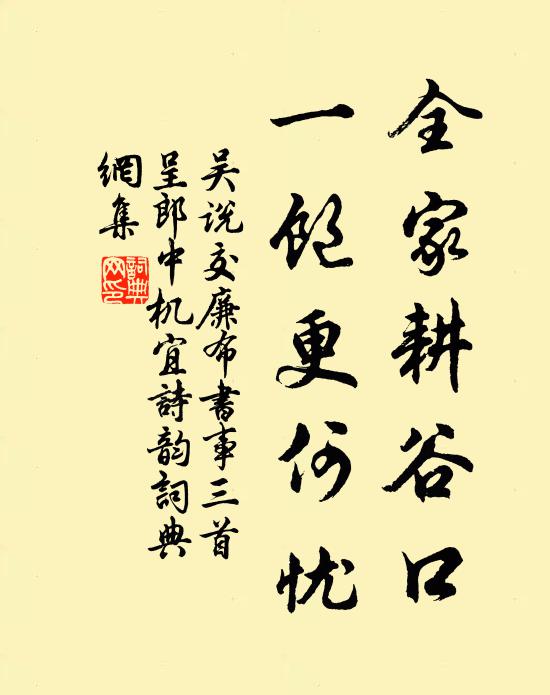 全家耕谷口
一飽更何忧
吴说交廉布書事三首
呈郎中机宜詩韵詞典
網集
詞典網印